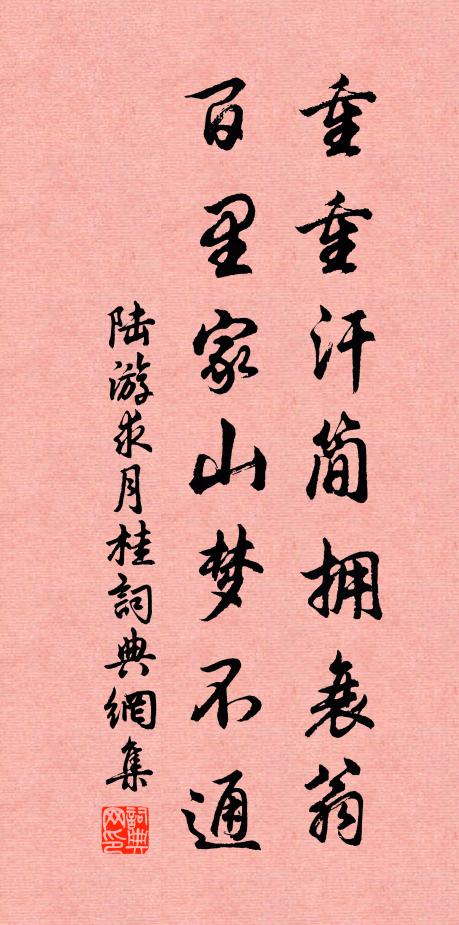 重重汗简拥衰翁
百里家山梦不通
陆游求月桂詞典網集
詞典网印